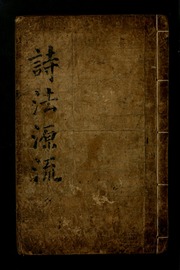 詩法源流